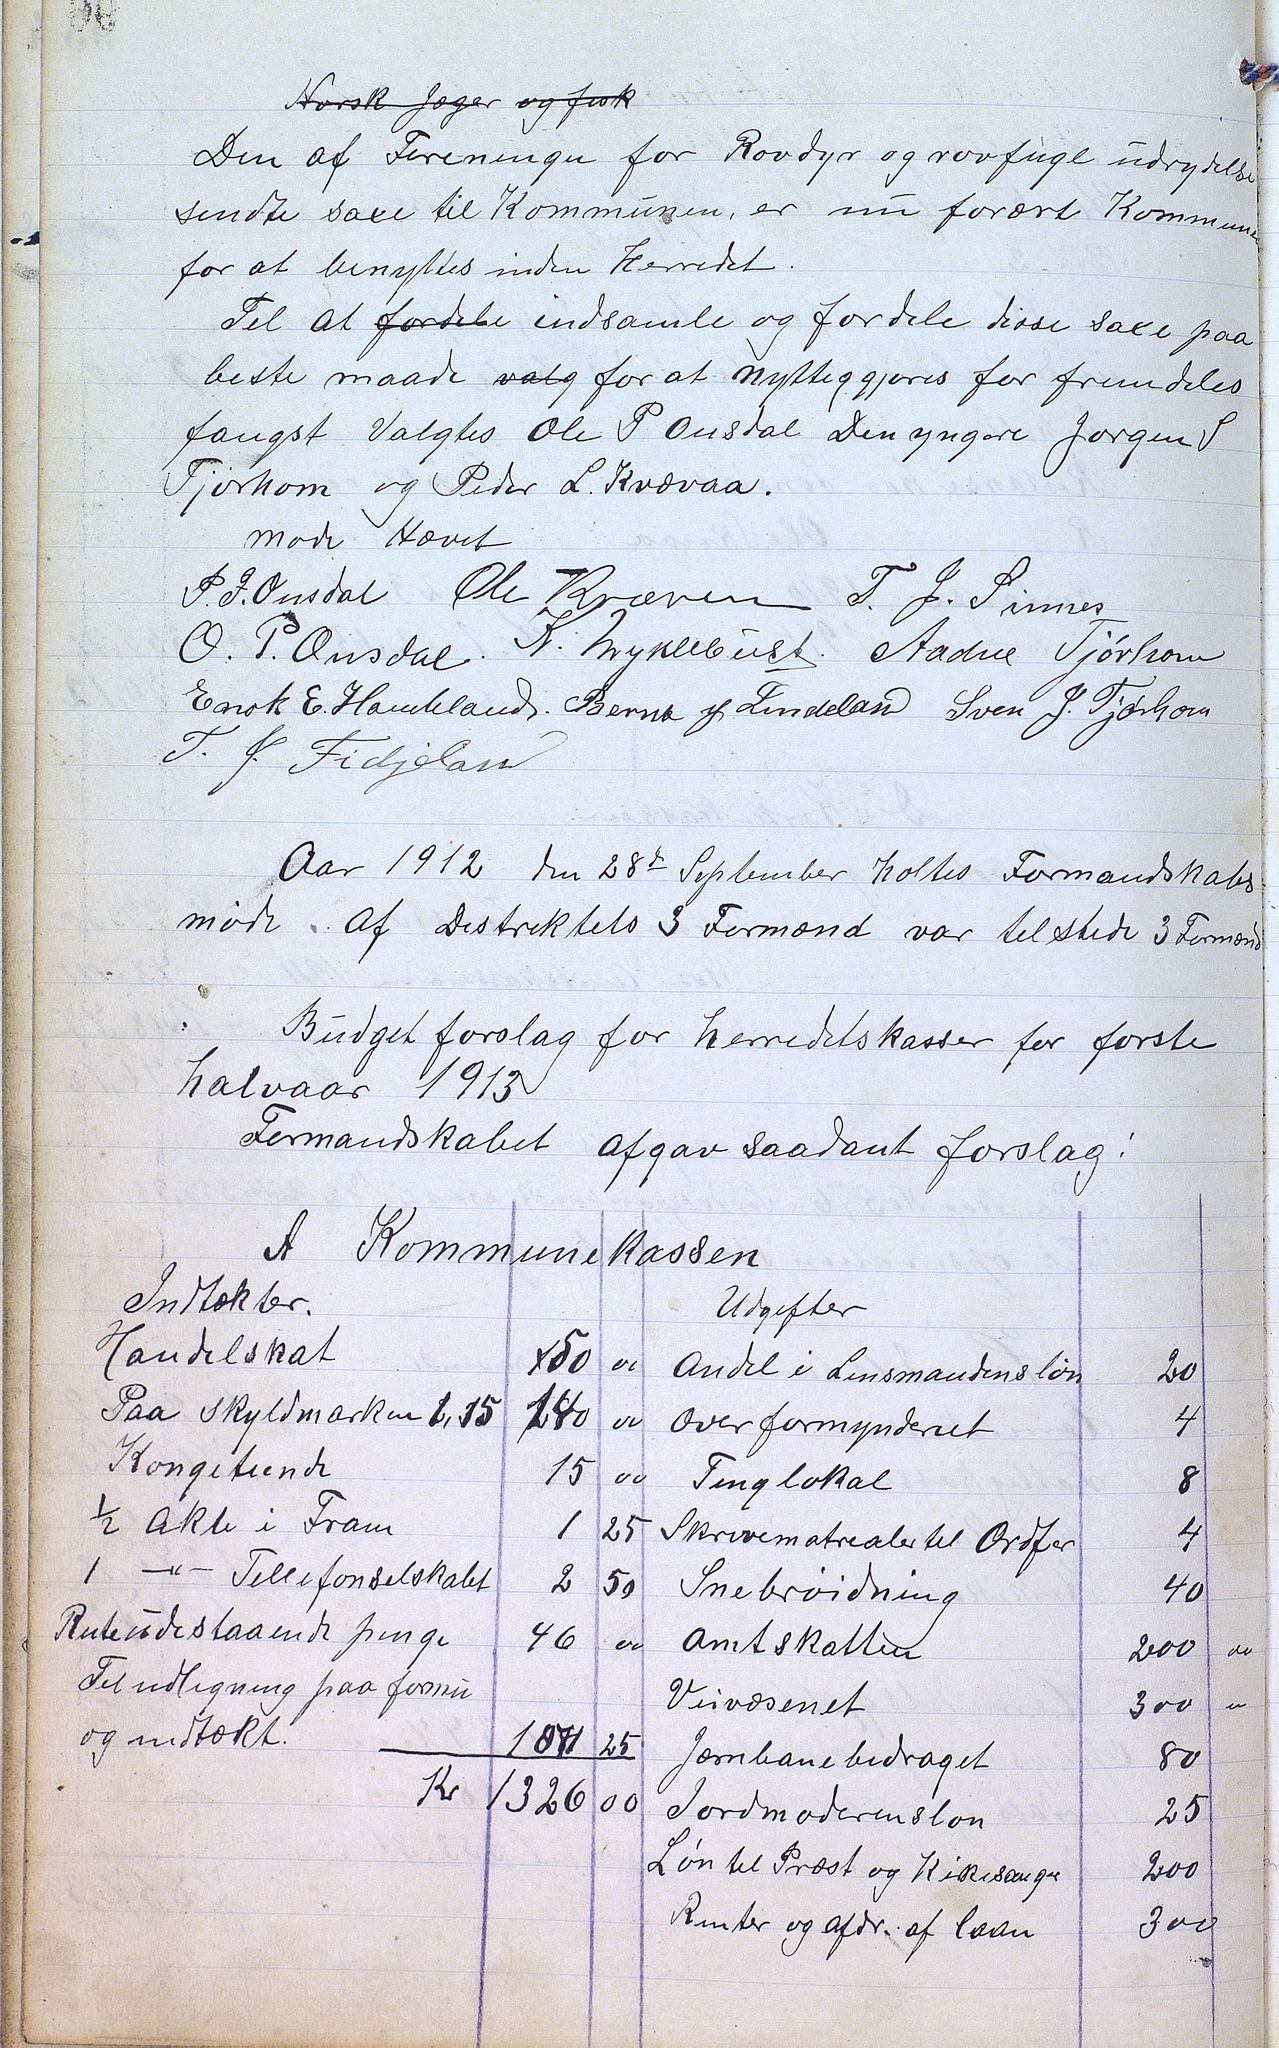 Norsk Jæger og fisk
Den af Foreninge for Rovdyr og rovfugl udrydelse
sendte saxe til Kommunen, er nu forært Kommune
for at benyttes inden Herredet.
Tel at fordele indsamle og fordele disse saxe paa
beste maade valg for at nytteggjøres for fremdeles
fangst Valgtes Ole P Ousdal Den yngere Jørgen S
Tjørhom og Peder L. Kvævaa.
Møde Hævet
P. J. Ousdal Ole Kvæven T. J. Sinnes
O. P. Ousdal. K. Myklebust. Aadne Tjórhom
Enok E. Haukland. Bernt Findeland Sven J. Tjørhom
T. J. Fidjeland
Aar 1912 den 28de September holtes Formandskabs
møde. Af Distriktets 3 Formænd var telstede 3 Formænd
Budget forslag for herredetskasser for første
halvaar 1913
Formandskabet afgav saadant forslag:
A Kommunekassen
Indtækter. Udgifter
Handelskat 50 00 Andel i Lensmandensløn 20
Paa skyldmarken 1,15 180 00 overformynderiet 4
Kongetiende 15 00 Tinglokal 8
1/2 Akte i Fram 1 25 Skrivematrealer til Ordfør 4
1 -"- Tellefonselskabet 2 50 Snebrøidning 40
Rute udestaaende penge 46 00 Amtskatten 200 00
Tel udligning paa formu Veivæsenet 300 "
og indtækt. 1071 25 Jærnbanebidraget 80
Kr 1326 00 Jordmoderensløn 25
Løn til Præst og Kirkesanger 200
Renter og afdr. af laan 300